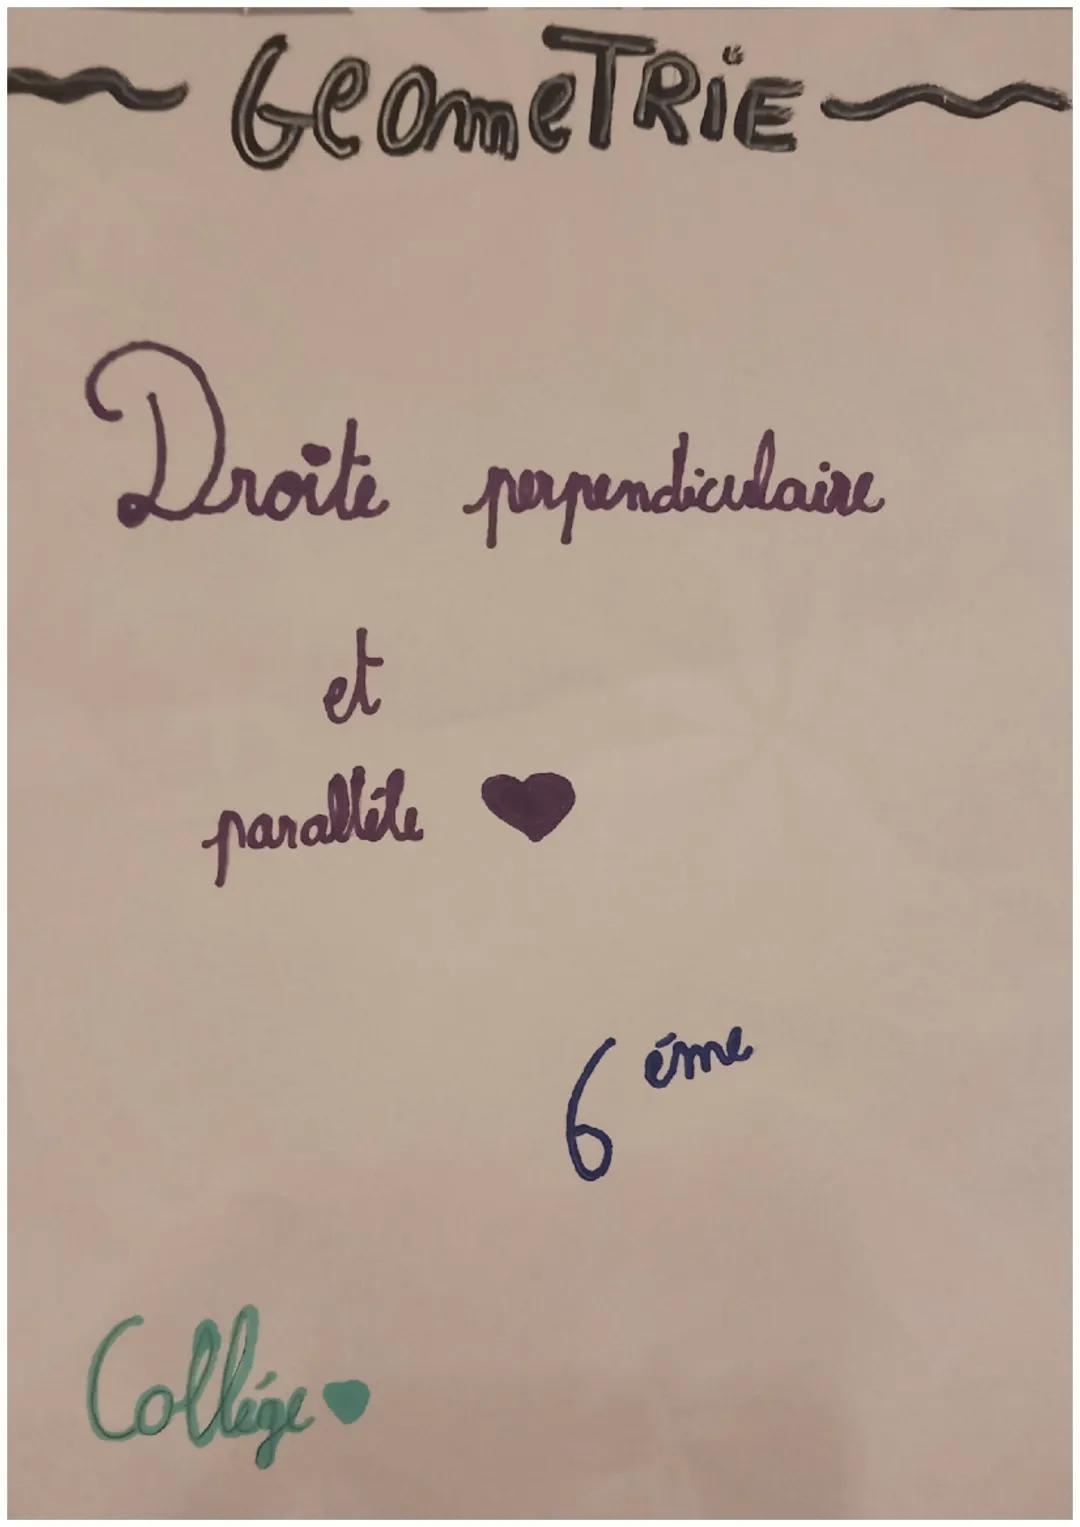 GeomeTRiE
Droite perpendiculaire
et
parallèle
6 éme
Collége